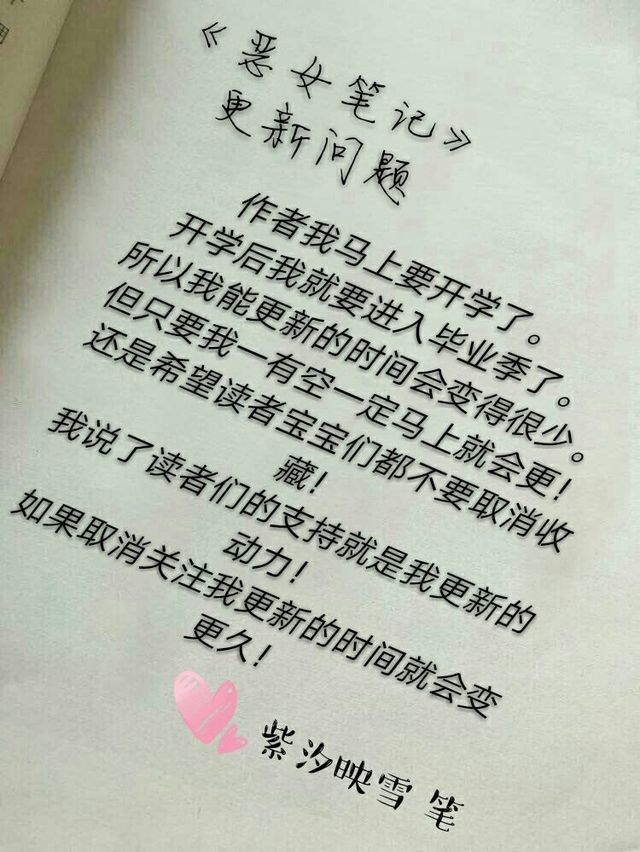 《恶女笔记》
更新问题
作者我马上要开学了。
开学后我就要进入毕业季了。
所以我能更新的时间会变得很少。
但只要我一有空一定马上就会更！
还是希望读者宝宝们都不要取消收
藏！
我说了读者们的支持就是我更新的
动力！
如果取消关注我更新的时间就会变
更久！
紫汐映雪 笔